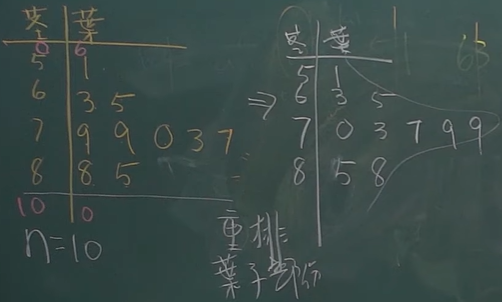 莖 葉
0 6
5 1
6 3 5
7 9 9 0 3 7
8 8 5
10 0
n=10
⇒
莖 葉
5 1
6 3 5
7 0 3 7 9 9
8 5 8
重排
葉子部份